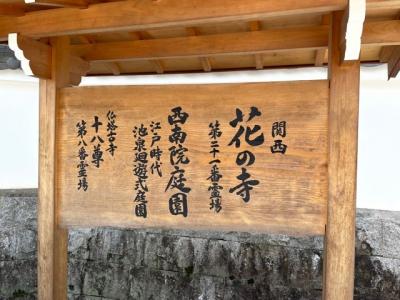 関西
花の寺
第二十一番霊場
西南院庭園
江戸時代
池泉廻遊式庭園
仏塔古寺
十八尊
第八番霊場